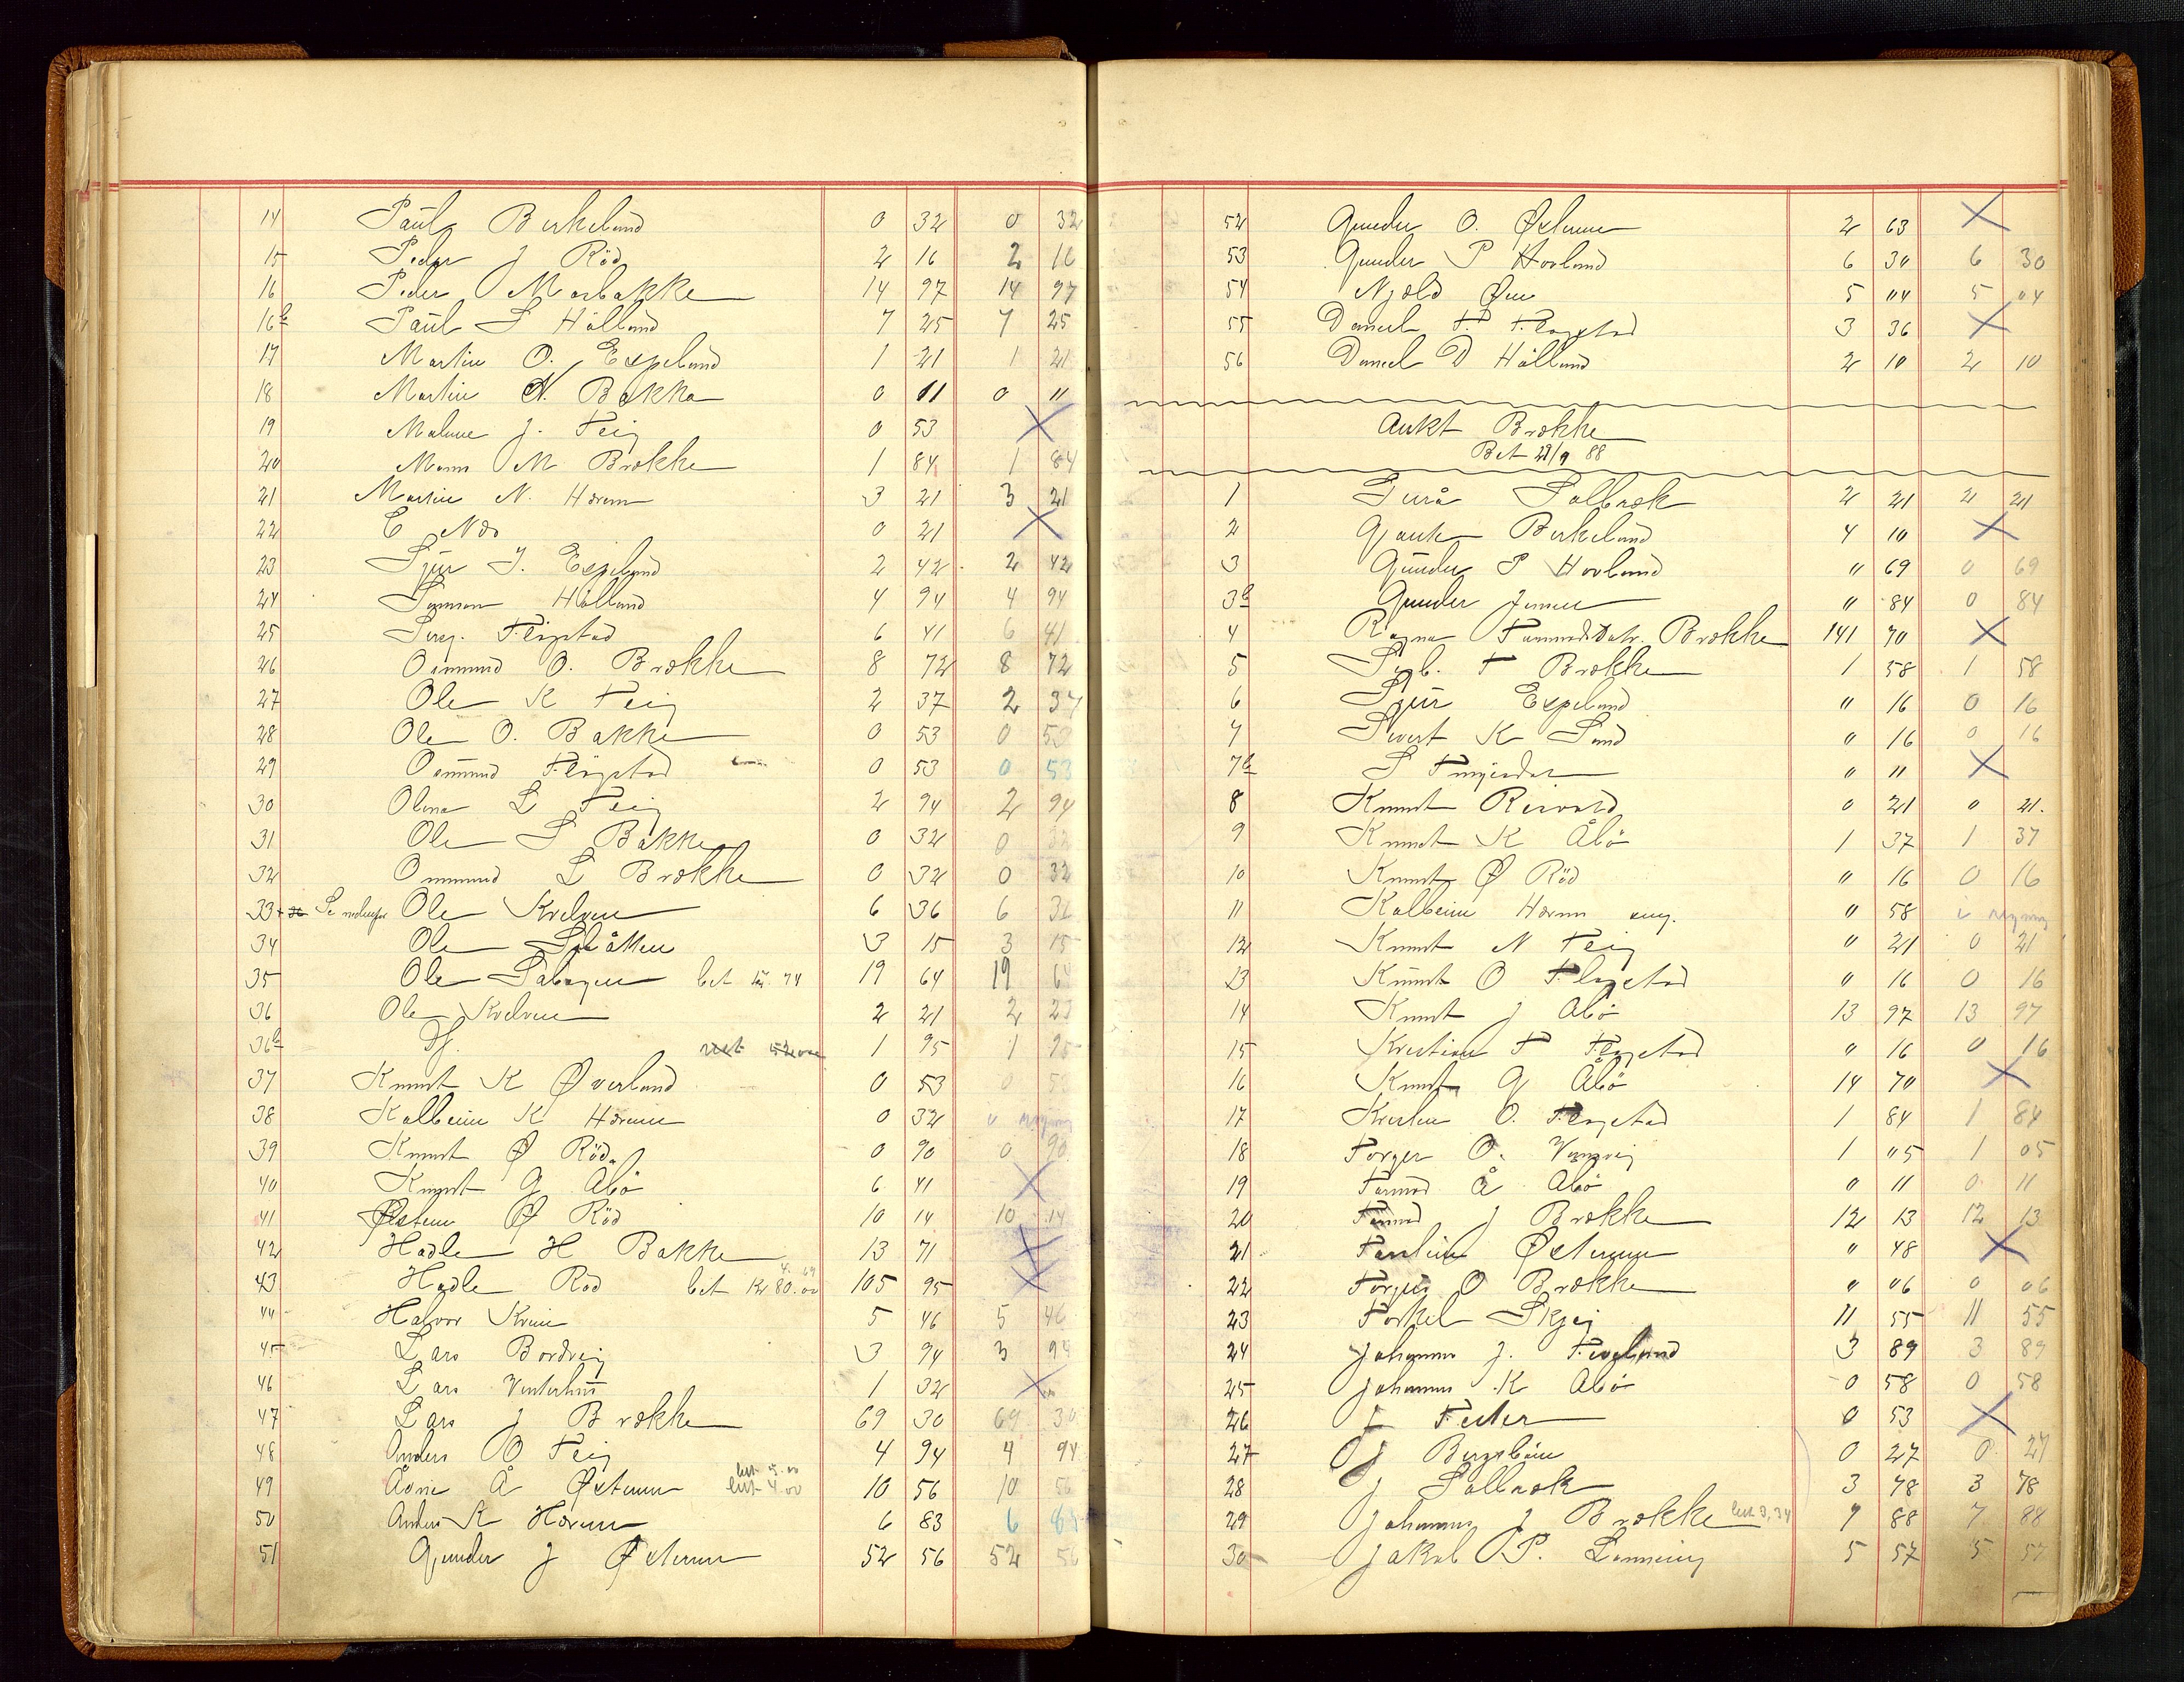 14 Paul Birkeland 0 32 0 32
15 Peder J Röd 2 16 2 16
16 Peder Morbakke 14 97 14 97
16b Paul S Hålland 7 25 7 25
17 Martin O. Espeland 1 21 1 21
18 Martin N. Bakka 0 11 0 11
19 Malene J. Teig 0 53 X
20 Mons M Brokke 1 84 1 84
21 Martin N. Horem 3 21 3 21
22 E Næs 0 21 X
23 Sjur I. Espeland 2 42 2 42
24 Hålland 4 94 4 94
25 6 41 6 41
26 Osmund O. Brokke 8 72 8 72
27 Ole K Teig 2 37 2 37
28 Ole O. Bakke 0 53 0 53
29 Osmund 0 53 0 53
30 Olena L Teig 2 94 2 94
31 Ole S Bakke 0 32 0 32
32 Osmund L Brokke 0 32 0 32
33 Ole Kvelven 6 36 6 36
34 Ole 3 15 3 15
35 Ole bet 19 64 19 64
36 Ole Kvelven 2 21 2 23
36b Dj. 1 95 1 95
37 Knut K Øverland 0 53 0 53
38 Kolbein K Horem 0 32
39 Knut Ø Röd 0 90 0 90
40 Knut G Åbö 6 41 X
41 Østen Ø Röd 10 14 10 14
42 Hadle H Bakke 13 71 X
43 Hadle Röd bet Kr 80.00 105 95 X
44 Halvor 5 46 5 46
45 Lars Bordvig 3 94 3 94
46 Lars Vinterhus 1 32 X
47 Lars J Brokke 69 30 69 30
48 Anders O Teig 4 94 4 94
49 Å Østenen 10 56 10 56
50 Anders K Horem 6 83 6 83
51 Gunder J Østenen 52 56 52 56
52 Gunder O. Østenen 2 63 X
53 Gunder P Hovland 6 30 6 30
54 Njöld Øen 5 04 5 04
55 Daniel T. 3 36 X
56 Daniel D Hålland 2 10 2 10
Aukt Brokke
Bet 21/9 88
1 Solbrek 2 21 2 21
2 Birkeland 4 10 X
3 Gunder P Hovland " 69 0 69
3b Gunder " 84 0 84
4 Ragna Brokke 141 70 X
5 Sigb. T Brokke 1 58 1 58
6 Sjur Espeland " 16 0 16
7 Sivert K Sand " 16 0 16
7b S " 11 X
8 Knut 0 21 0 21.
9 Knut K Åbö 1 37 1 37
10 Knut Ø Röd " 16 0 16
11 Kolbein Horem " 58
12 Knut N Teig " 21 0 21
13 Knut O " 16 0 16
14 Knut J Åbö 13 97 13 97
15 Kristian T " 16 0 16
16 Knut G Åbö 14 70 X
17 O. 1 84 1 84
18 Torger O. 1 05 1 05
19 Tormod Å Åbö " 11 0 11
20 Tormod J Brokke 12 13 12 13
21 Østenen " 48 X
22 Torger O Brokke " 06 0 06
23 Torkel Skjeg 11 55 11 55
24 Johannes J. 3 89 3 89
25 Johannes K Åbö 0 58 0 58
26 0 53 X
27 J 0 27 0 27
28 J Solbrek 3 78 3 78
29 Johannes J Brokke 7 88 7 88
30 Jakob P. Lanning 5 57 5 57